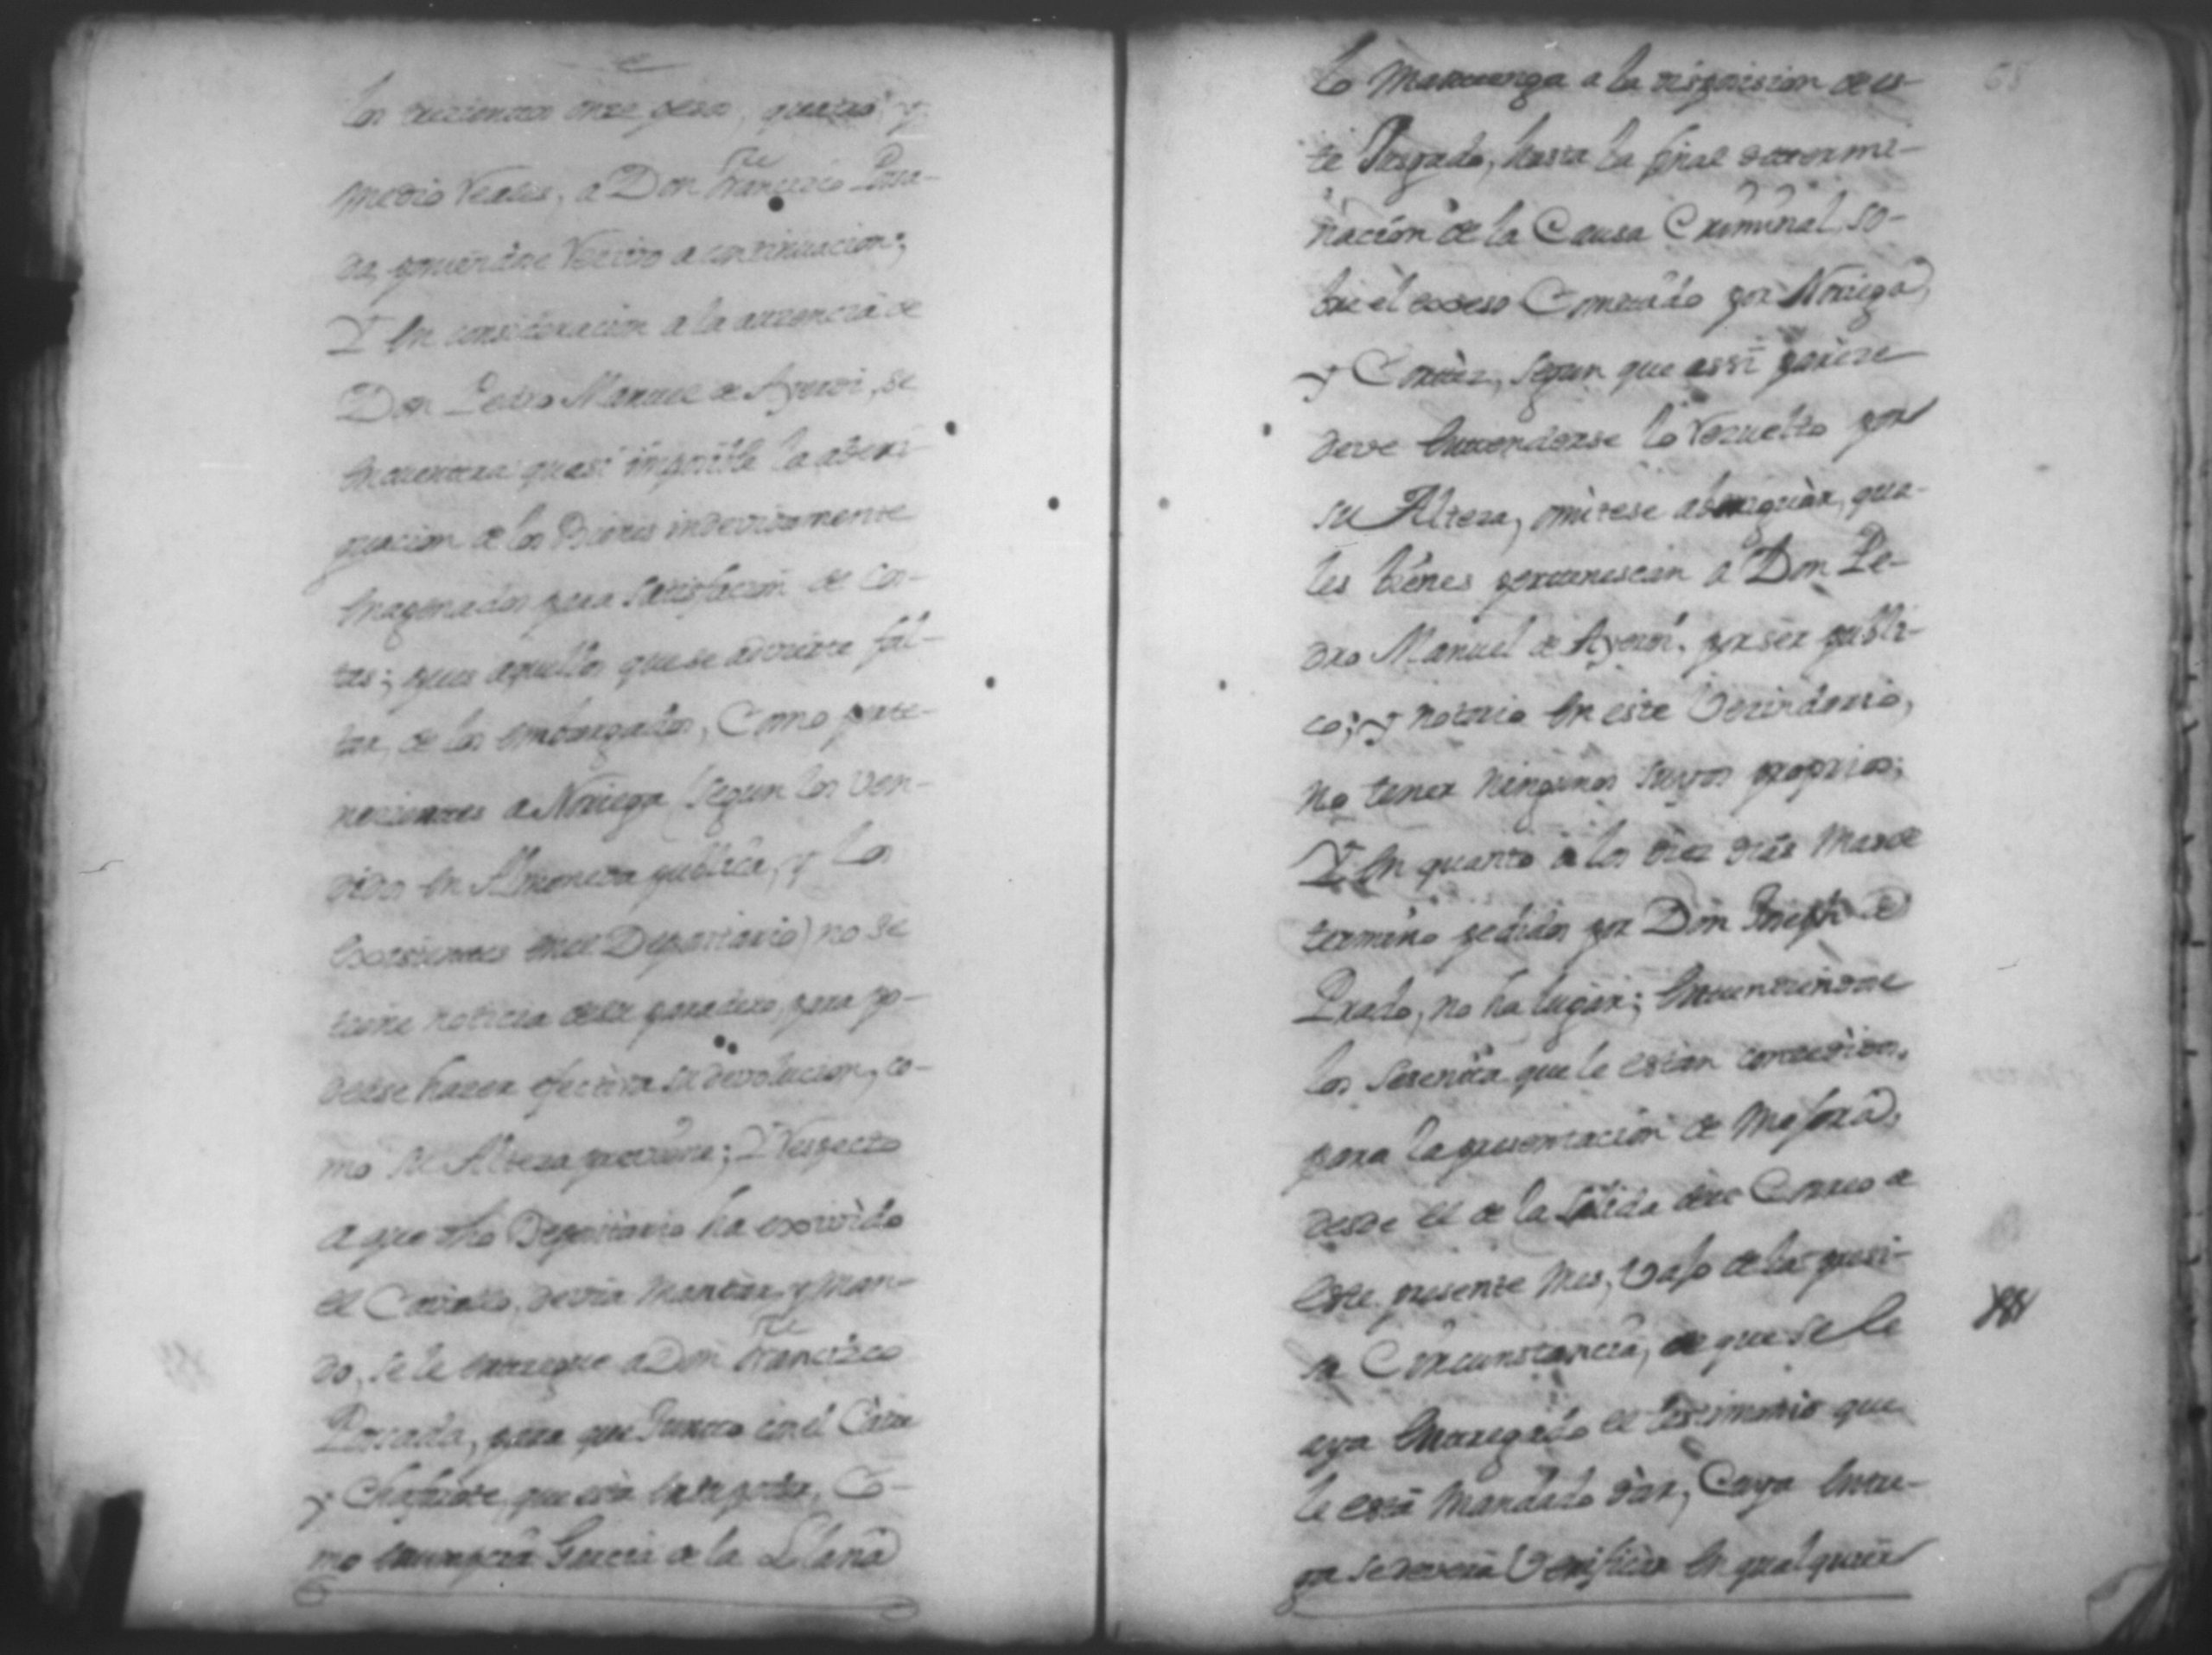 los trecientos onze pesos, quatro y
medio reales, a Don Francisco Posa-
da, poniendose recivo a continuacion;
Y En consideracion a la ausencia de
Don Pedro Manuel de Ayerdi, se
encuentra quasi imposible la aberi-
guacion de los Bienes indevidamente
Enagenados para satisfacion de Cos-
tas; pues aquellos que se advierte fal-
tar, de los embargados, Como perte-
necientes a Noriega (segun los Ven-
didos en Almoneda publica, y Los
Existentes en el Depositario) no se
tiene noticia de su paradero, para po-
derse hazer efectiva su devolucion, co-
mo su Alteza previene; Y Respecto
a que dho Depositario ha exivido
el Cavallo, devia mandar, y man-
do, se le entregue a Don Francisco
Possada, para que Juncto con el
y Chafarote, que esta en su poder, Co-
mo Garcia de la Llana
lo mantenga a la disposision de es-
te Jusgado, hasta la final determi-
nación de la Causa Criminal, so-
bre el exseso Cometido por Noriega,
y Cortéz, segun que assi parece
deve Entenderse lo resuelto por
su Alteza, omitese aberiguàr, qua-
les biénes pertenescan a Don Pe-
dro Manuel de Ayerdi, por ser publi-
co, y notorio En este Vecindario,
no tener ningunos suyos proprios;
Y En quanto a los diez dias Mas de
termino pedidos por Don Joseph de
Prado, no ha lugàr; Entendiendose
los sesenta que le estàn concedidos,
para la presentación de Mejora,
desde el de la salida del Correo de
este presente Mes, Vajo de la presi-
sa Circunstancia, de que se le
aya Entregado el testimonio que
le està mandado dàr, Cuya Entre-
ga se deverà Verificàr En qualquier